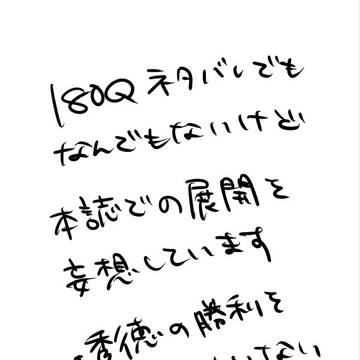 180Qネタバレでも
なんでもないけど
本誌での展開を
妄想しています
秀徳の勝利を